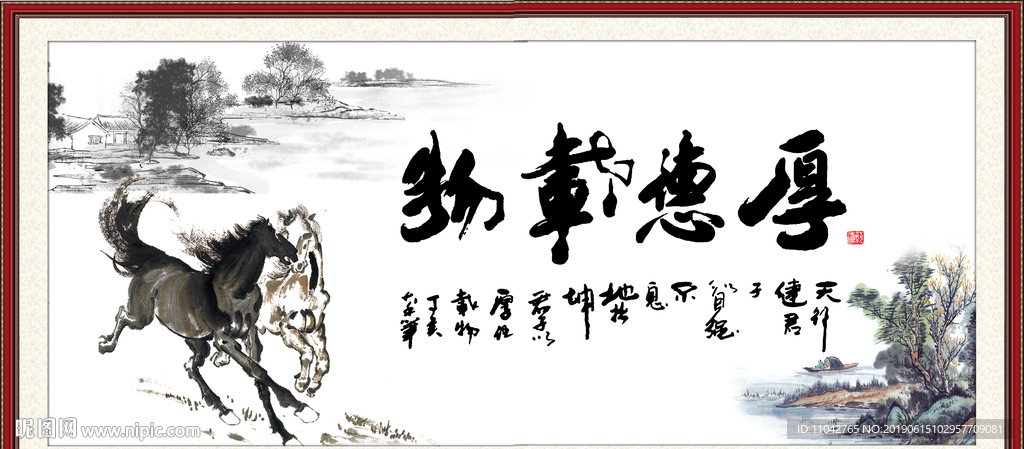 厚德載物
天行
健君
子
以自强
不
息
地势
坤
君子以
厚德
載物
丁亥
昵图网 www.nipic.com
ID:11042765 NO:20190615102957709081